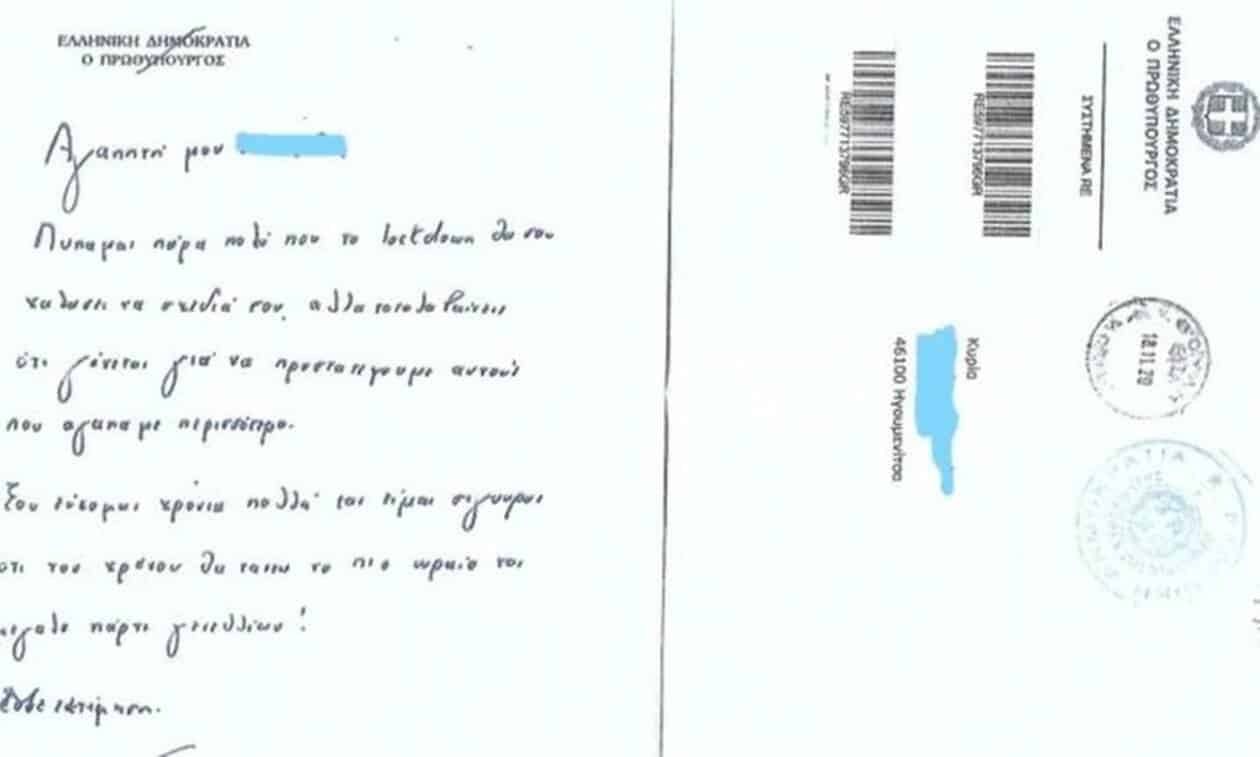 ΕΛΛΗΝΙΚΗ ΔΗΜΟΚΡΑΤΙΑ
Ο ΠΡΩΘΥΠΟΥΡΓΟΣ
Αγαπητή μου
Λυπάμαι πάρα πολύ που το lockdown θα σου
χαλάσει τα σχέδιά σου, αλλά καταλαβαίνεις
ότι γίνεται για να προστατέψουμε αυτούς
που αγαπάμε περισσότερο.
Σου εύχομαι χρόνια πολλά και είμαι σίγουρος
ότι του χρόνου θα κάνεις το πιο ωραίο και
μεγάλο πάρτι γενεθλίων!
εκτίμηση.
ΕΛΛΗΝΙΚΗ ΔΗΜΟΚΡΑΤΙΑ
Ο ΠΡΩΘΥΠΟΥΡΓΟΣ
ΣΥΣΤΗΜΕΝΑ RE
RE597713796GR
RE597713796GR
18.11.20
Κυρία
46100 Ηγουμενίτσα